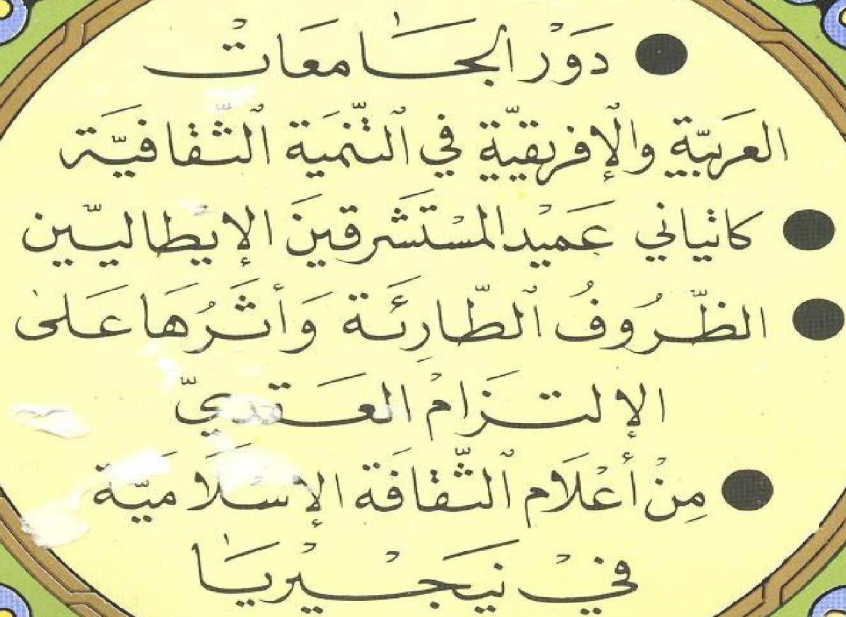 ● دَوْر الجَامعَات
العَربيّة والإفريقيّة في التّنمية الثّقافيّة
● كاتياني عَميْد المسْتشرقينَ الإيْطاليّين
● الظّرُوفُ الطّارِئَة وَأثَرُهَا عَلى
الإلتزَامْ العَقديّ
● مِنْ أعْلَام الثّقافَة الإسْلَاميّة
فيْ نيَجيْريَا